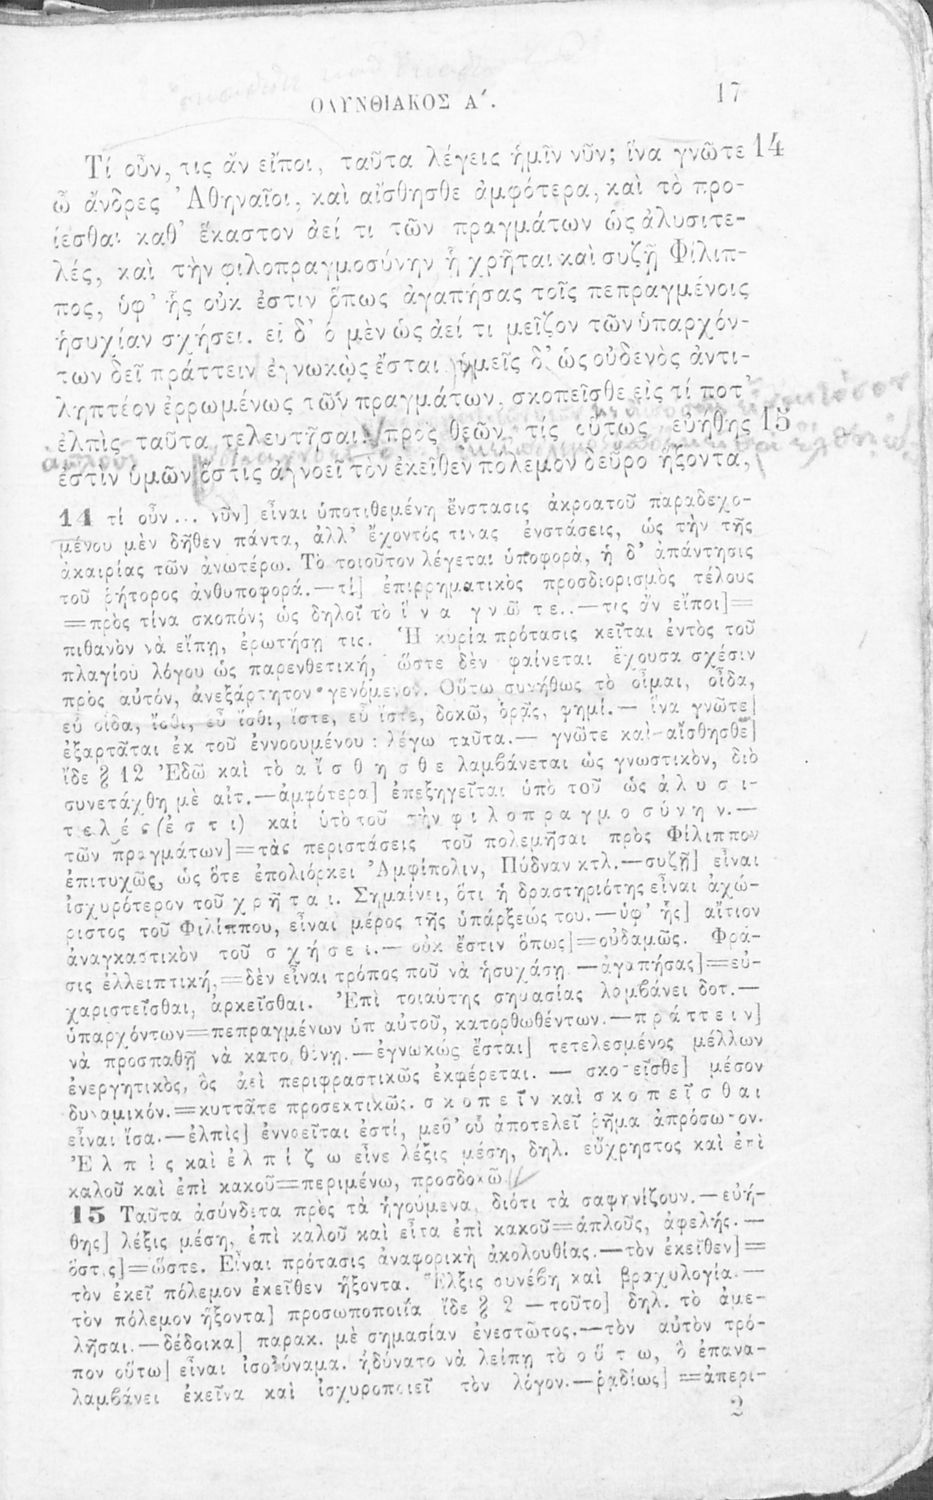 ΟΛΥΝΘΙΑΚΟΣ Α΄.
17
Τί οὖν, τις ἂν εἴποι, ταῦτα λέγεις ἡμῖν νῦν; ἵνα γνῶτε 14
ὦ ἄνδρες Ἀθηναῖοι, καὶ αἴσθησθε ἀμφότερα, καὶ τὸ προ-
ΐεσθαι καθ᾽ ἕκαστον ἀεί τι τῶν πραγμάτων ὡς ἀλυσιτε-
λές, καὶ τὴν φιλοπραγμοσύνην ᾗ χρῆται καὶ συζῇ Φίλιπ-
πος, ὑφ᾽ ἧς οὐκ ἔστιν ὅπως ἀγαπήσας τοῖς πεπραγμένοις
ἡσυχίαν σχήσει. εἰ δ᾽ ὁ μὲν ὡς ἀεί τι μεῖζον τῶν ὑπαρχόν-
των δεῖ πράττειν ἐγνωκὼς ἔσται ἡμεῖς δ᾽ ὡς οὐδενὸς ἀντι-
ληπτέον ἐρρωμένως τῶν πραγμάτων, σκοπεῖσθε εἰς τί ποτ᾽
ἐλπὶς ταῦτα τελευτῆσαι. πρὸς θεῶν τίς οὕτως εὐήθης 15
ἁπλοῦς
ἐστιν ὑμῶν ὅστις ἀγνοεῖ τὸν ἐκεῖθεν πόλεμον δεῦρο ἥξοντα,
14 τί οὖν... νῦν] εἶναι ὑποτιθεμένη ἔνστασις ἀκροατοῦ παραδεχο-
μένου μὲν δῆθεν πάντα, ἀλλ᾽ ἔχοντός τινας ἐνστάσεις, ὡς τὴν τῆς
ἀκαιρίας τῶν ἀνωτέρω. Τὸ τοιοῦτον λέγεται ὑποφορά, ἡ δ᾽ ἀπάντησις
τοῦ ῥήτορος ἀνθυποφορά.—τί] ἐπιρρηματικὸς προσδιορισμὸς τέλους
=πρὸς τίνα σκοπόν; ὡς δηλοῖ τὸ ἵνα γνῶτε..—τις ἂν εἴποι]=
πιθανὸν νὰ εἴπῃ, ἐρωτήσῃ τις. Ἡ κυρία πρότασις κεῖται ἐντὸς τοῦ
πλαγίου λόγου ὡς παρενθετική, ὥστε δὲν φαίνεται ἔχουσα σχέσιν
πρὸς αὐτόν, ἀνεξάρτητον γενόμενον. Οὕτω συνήθως τὸ οἶμαι, οἶδα,
εὖ οἶδα, ἴσθι, εὖ ἴσθι, ἴστε, εὖ ἴστε, δοκῶ, ὁρᾷς, φημί.— ἵνα γνῶτε]
ἐξαρτᾶται ἐκ τοῦ ἐννοουμένου : λέγω ταῦτα.— γνῶτε καὶ αἴσθησθε]
ἴδε § 12 Ἐδῶ καὶ τὸ αἴσθησθε λαμβάνεται ὡς γνωστικὸν, διὸ
συνετάχθη μὲ αἰτ.—ἀμφότερα] ἐπεξηγεῖται ὑπὸ τοῦ ὡς ἀλυσι-
τελές (ἐστι) καὶ ὑπὸ τοῦ τὴν φιλοπραγμοσύνην.—
τῶν πραγμάτων]=τὰς περιστάσεις τοῦ πολεμῆσαι πρὸς Φίλιππον
ἐπιτυχῶς, ὡς ὅτε ἐπολιόρκει Ἀμφίπολιν, Πύδναν κτλ.—συζῇ] εἶναι
ἰσχυρότερον τοῦ χρῆται. Σημαίνει, ὅτι ἡ δραστηριότης εἶναι ἀχώ-
ριστος τοῦ Φιλίππου, εἶναι μέρος τῆς ὑπάρξεώς του.—ὑφ᾽ ἧς] αἴτιον
ἀναγκαστικὸν τοῦ σχήσει.— οὐκ ἔστιν ὅπως]=οὐδαμῶς. Φρά-
σις ἐλλειπτική,=δὲν εἶναι τρόπος ποῦ νὰ ἡσυχάσῃ —ἀγαπήσας]=εὐ-
χαριστεῖσθαι, ἀρκεῖσθαι. Ἐπὶ τοιαύτης σημασίας λαμβάνει δοτ.—
ὑπαρχόντων=πεπραγμένων ὑπ αὐτοῦ, κατορθωθέντων.—πράττειν]
νὰ προσπαθῇ νὰ κατορθώνῃ.—ἐγνωκώς ἔσται] τετελεσμένος μέλλων
ἐνεργητικὸς, ὃς ἀεὶ περιφραστικῶς ἐκφέρεται. — σκοπεῖσθε] μέσον
δυναμικόν.=κυττᾶτε προσεκτικῶς. σκοπεῖν καὶ σκοπεῖσθαι
εἶναι ἴσα.—ἐλπὶς] ἐννοεῖται ἐστί, μεθ᾽ οὗ ἀποτελεῖ ῥῆμα ἀπρόσωπον.
Ἐλπὶς καὶ ἐλπίζω εἶνε λέξις μέση, δηλ. εὔχρηστος καὶ ἐπὶ
καλοῦ καὶ ἐπὶ κακοῦ=περιμένω, προσδοκῶ.
15 Ταῦτα ἀσύνδετα πρὸς τὰ ἡγούμενα, διότι τὰ σαφηνίζουν.—εὐή-
θης] λέξις μέση, ἐπὶ καλοῦ καὶ εἶτα ἐπὶ κακοῦ=ἁπλοῦς, ἀφελής.—
ὅστις]=ὥστε. Εἶναι πρότασις ἀναφορικὴ ἀκολουθίας.—τὸν ἐκεῖθεν]=
τὸν ἐκεῖ πόλεμον ἐκεῖθεν ἥξοντα. Ἕλξις συνέβη καὶ βραχυλογία.—
τὸν πόλεμον ἥξοντα] προσωποποιΐα ἴδε § 2 —τοῦτο] δηλ. τὸ ἀμε-
λῆσαι.—δέδοικα] παρακ. μὲ σημασίαν ἐνεστῶτος.—τὸν αὐτὸν τρό-
πον οὕτω] εἶναι ἰσοδύναμα. ἠδύνατο νὰ λείπῃ τὸ οὕτω, ὃ ἐπανα-
λαμβάνει ἐκεῖνα καὶ ἰσχυροποιεῖ τὸν λόγον.—ῥᾳδίως] =ἀπερι-
2